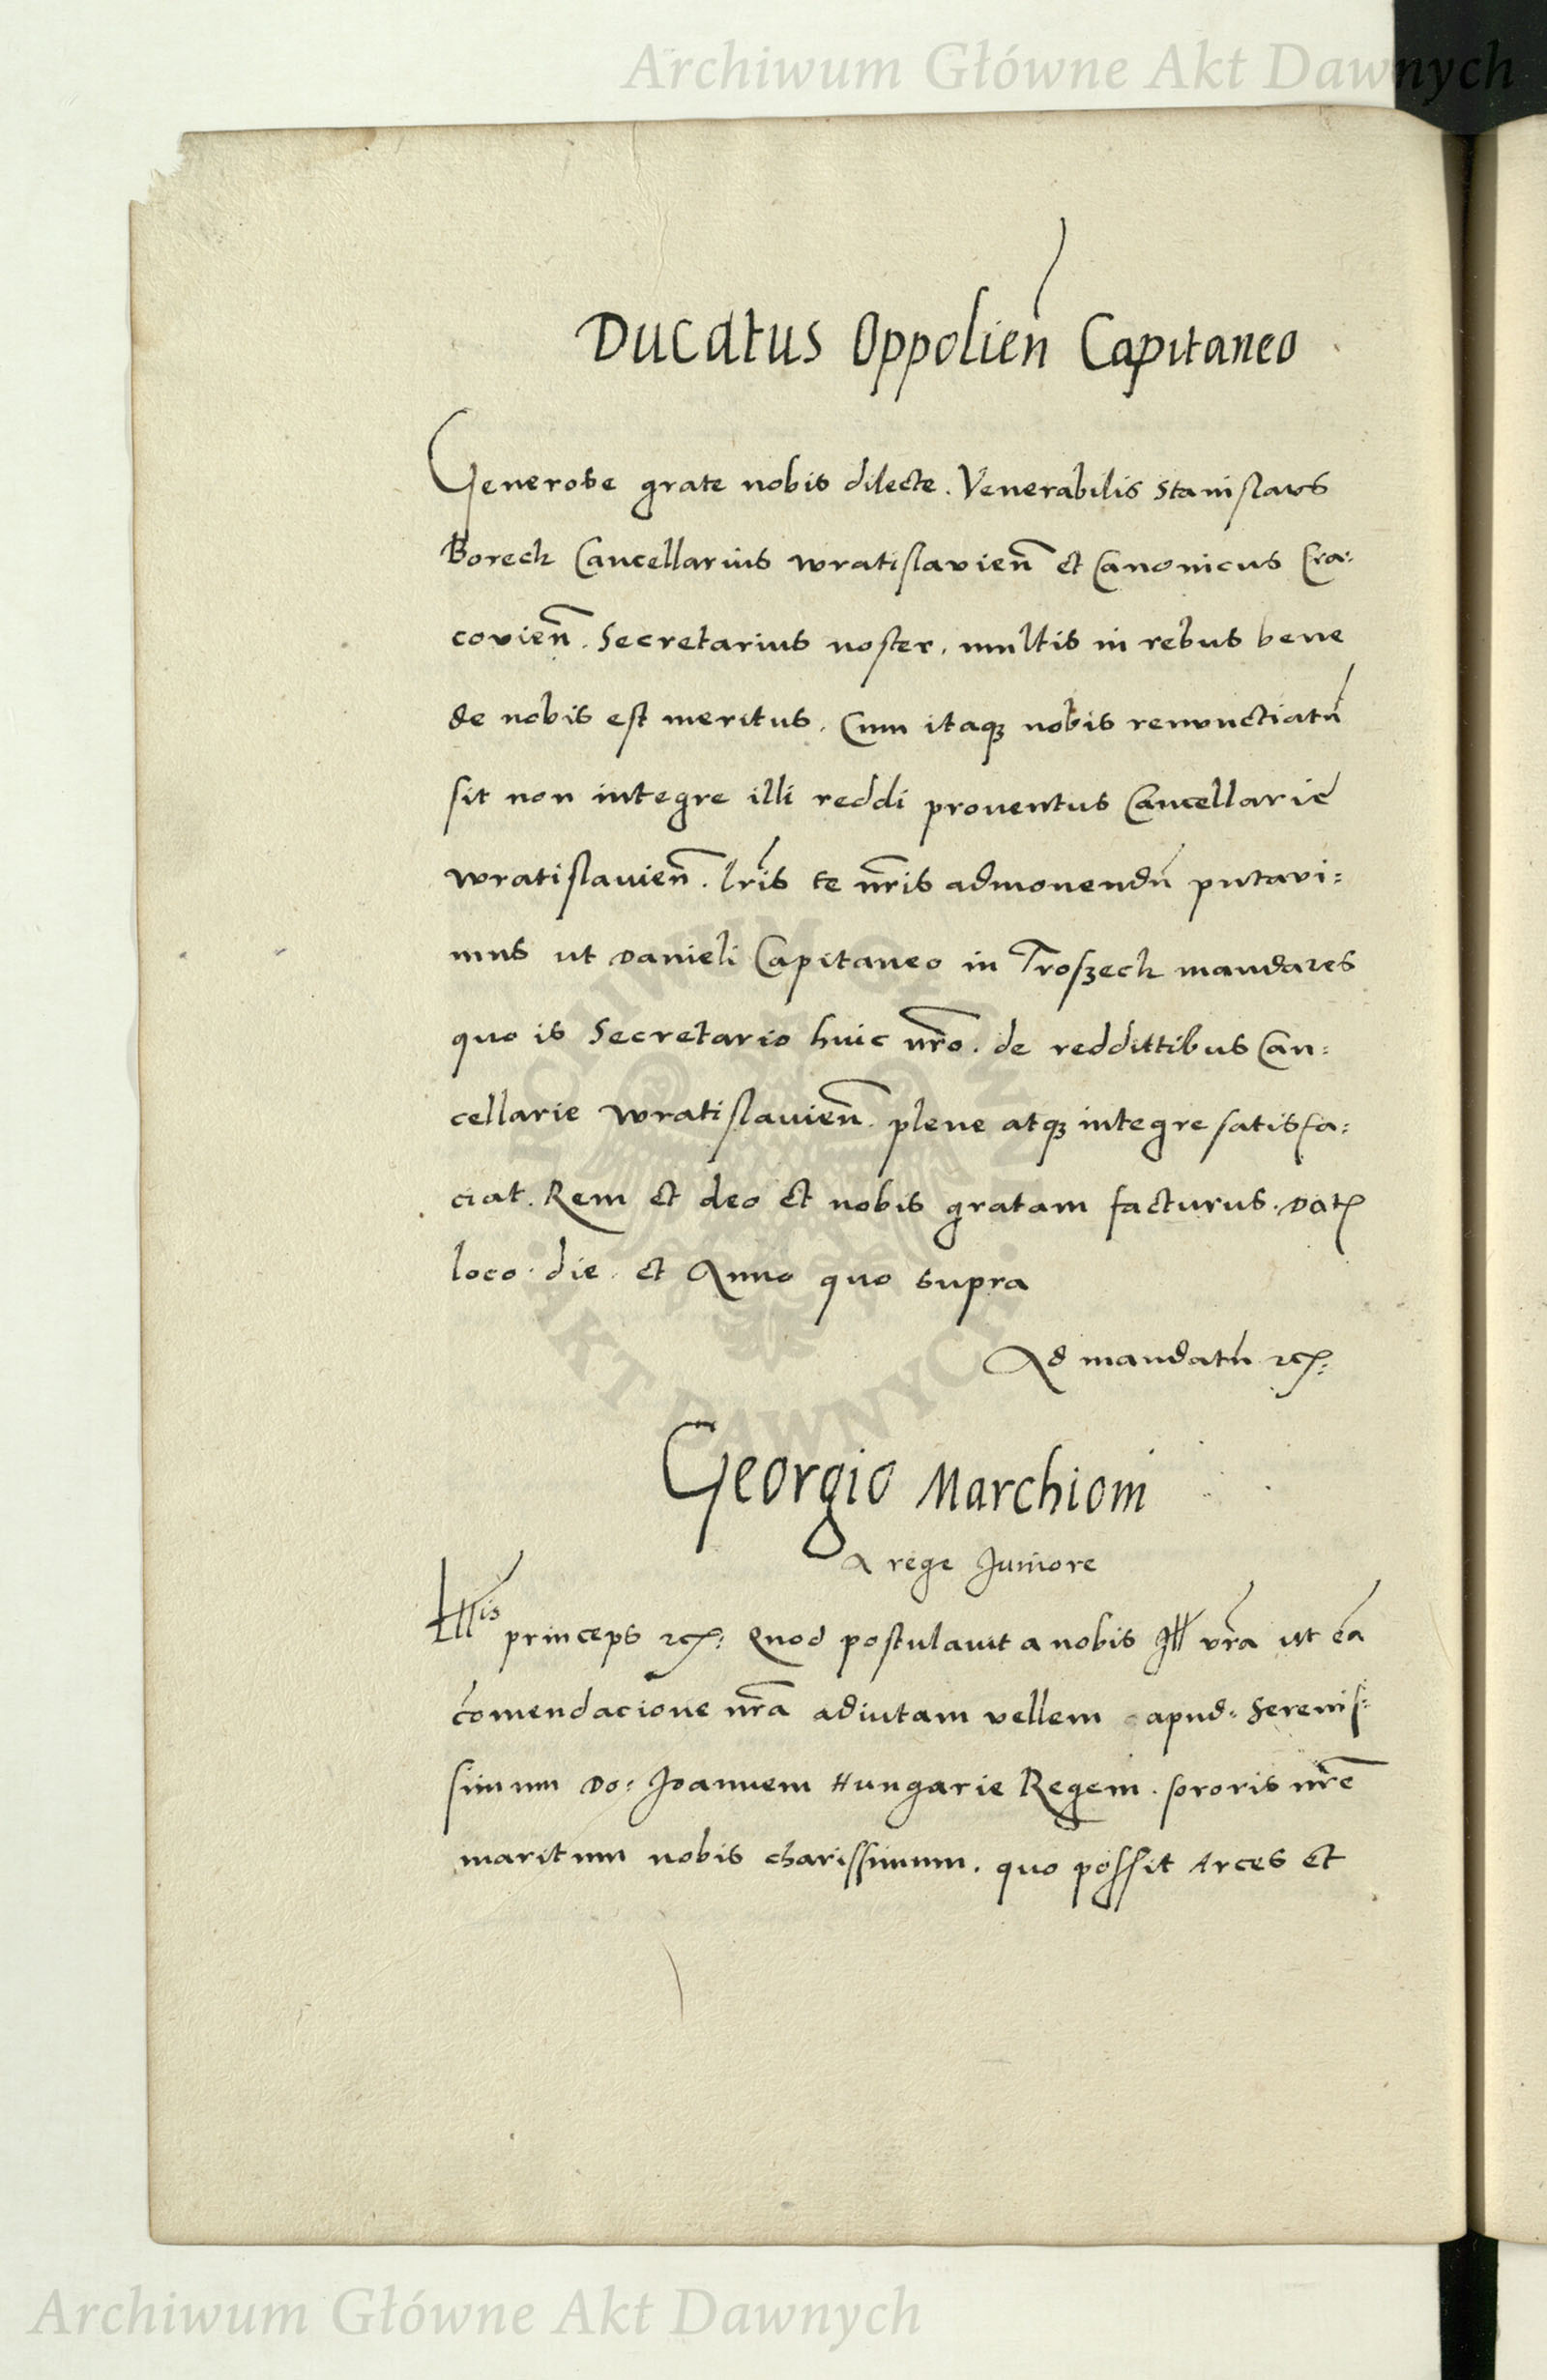 Archiwum Główne Akt Dawnych
Ducatus Oppolien̄ Capitaneo
Generose grate nobis dilecte. Venerabilis Stanislaus
Boreck Cancellarius wratislavien̄ et Canonicus Cra:
covien̄. Secretarius noster, multis in rebus bene
de nobis est meritus. Cum itaqꝫ nobis renunctiatū
sit non integre illi reddi proventus Cancellarie
wratislauien̄. lr̄is te nr̄is admonendū putavi:
mus ut Danieli Capitaneo in Troszeck mandares
quo is Secretario huic nr̄o. de reddittibus Can:
cellarie wratislauien̄. plene atqꝫ integre satisfa:
ciat. Rem et deo et nobis gratam facturus. Datꝭ
loco. die. et Anno quo supra
Ad mandatū ꝛc̄:
Georgio Marchioni
A rege Juniore
Illis princeps ꝛc̄: Quod postulavit a nobis Ill vr̄a ut eā
cōmendacione nr̄a adiutam vellem apud. Serenis:
simum Do: Joannem Hungarie Regem. sororis nr̄e
maritum nobis charissimum. quo possit Arces et
ARCHIWUM GŁÓWNE · AKT DAWNYCH ·
Archiwum Główne Akt Dawnych